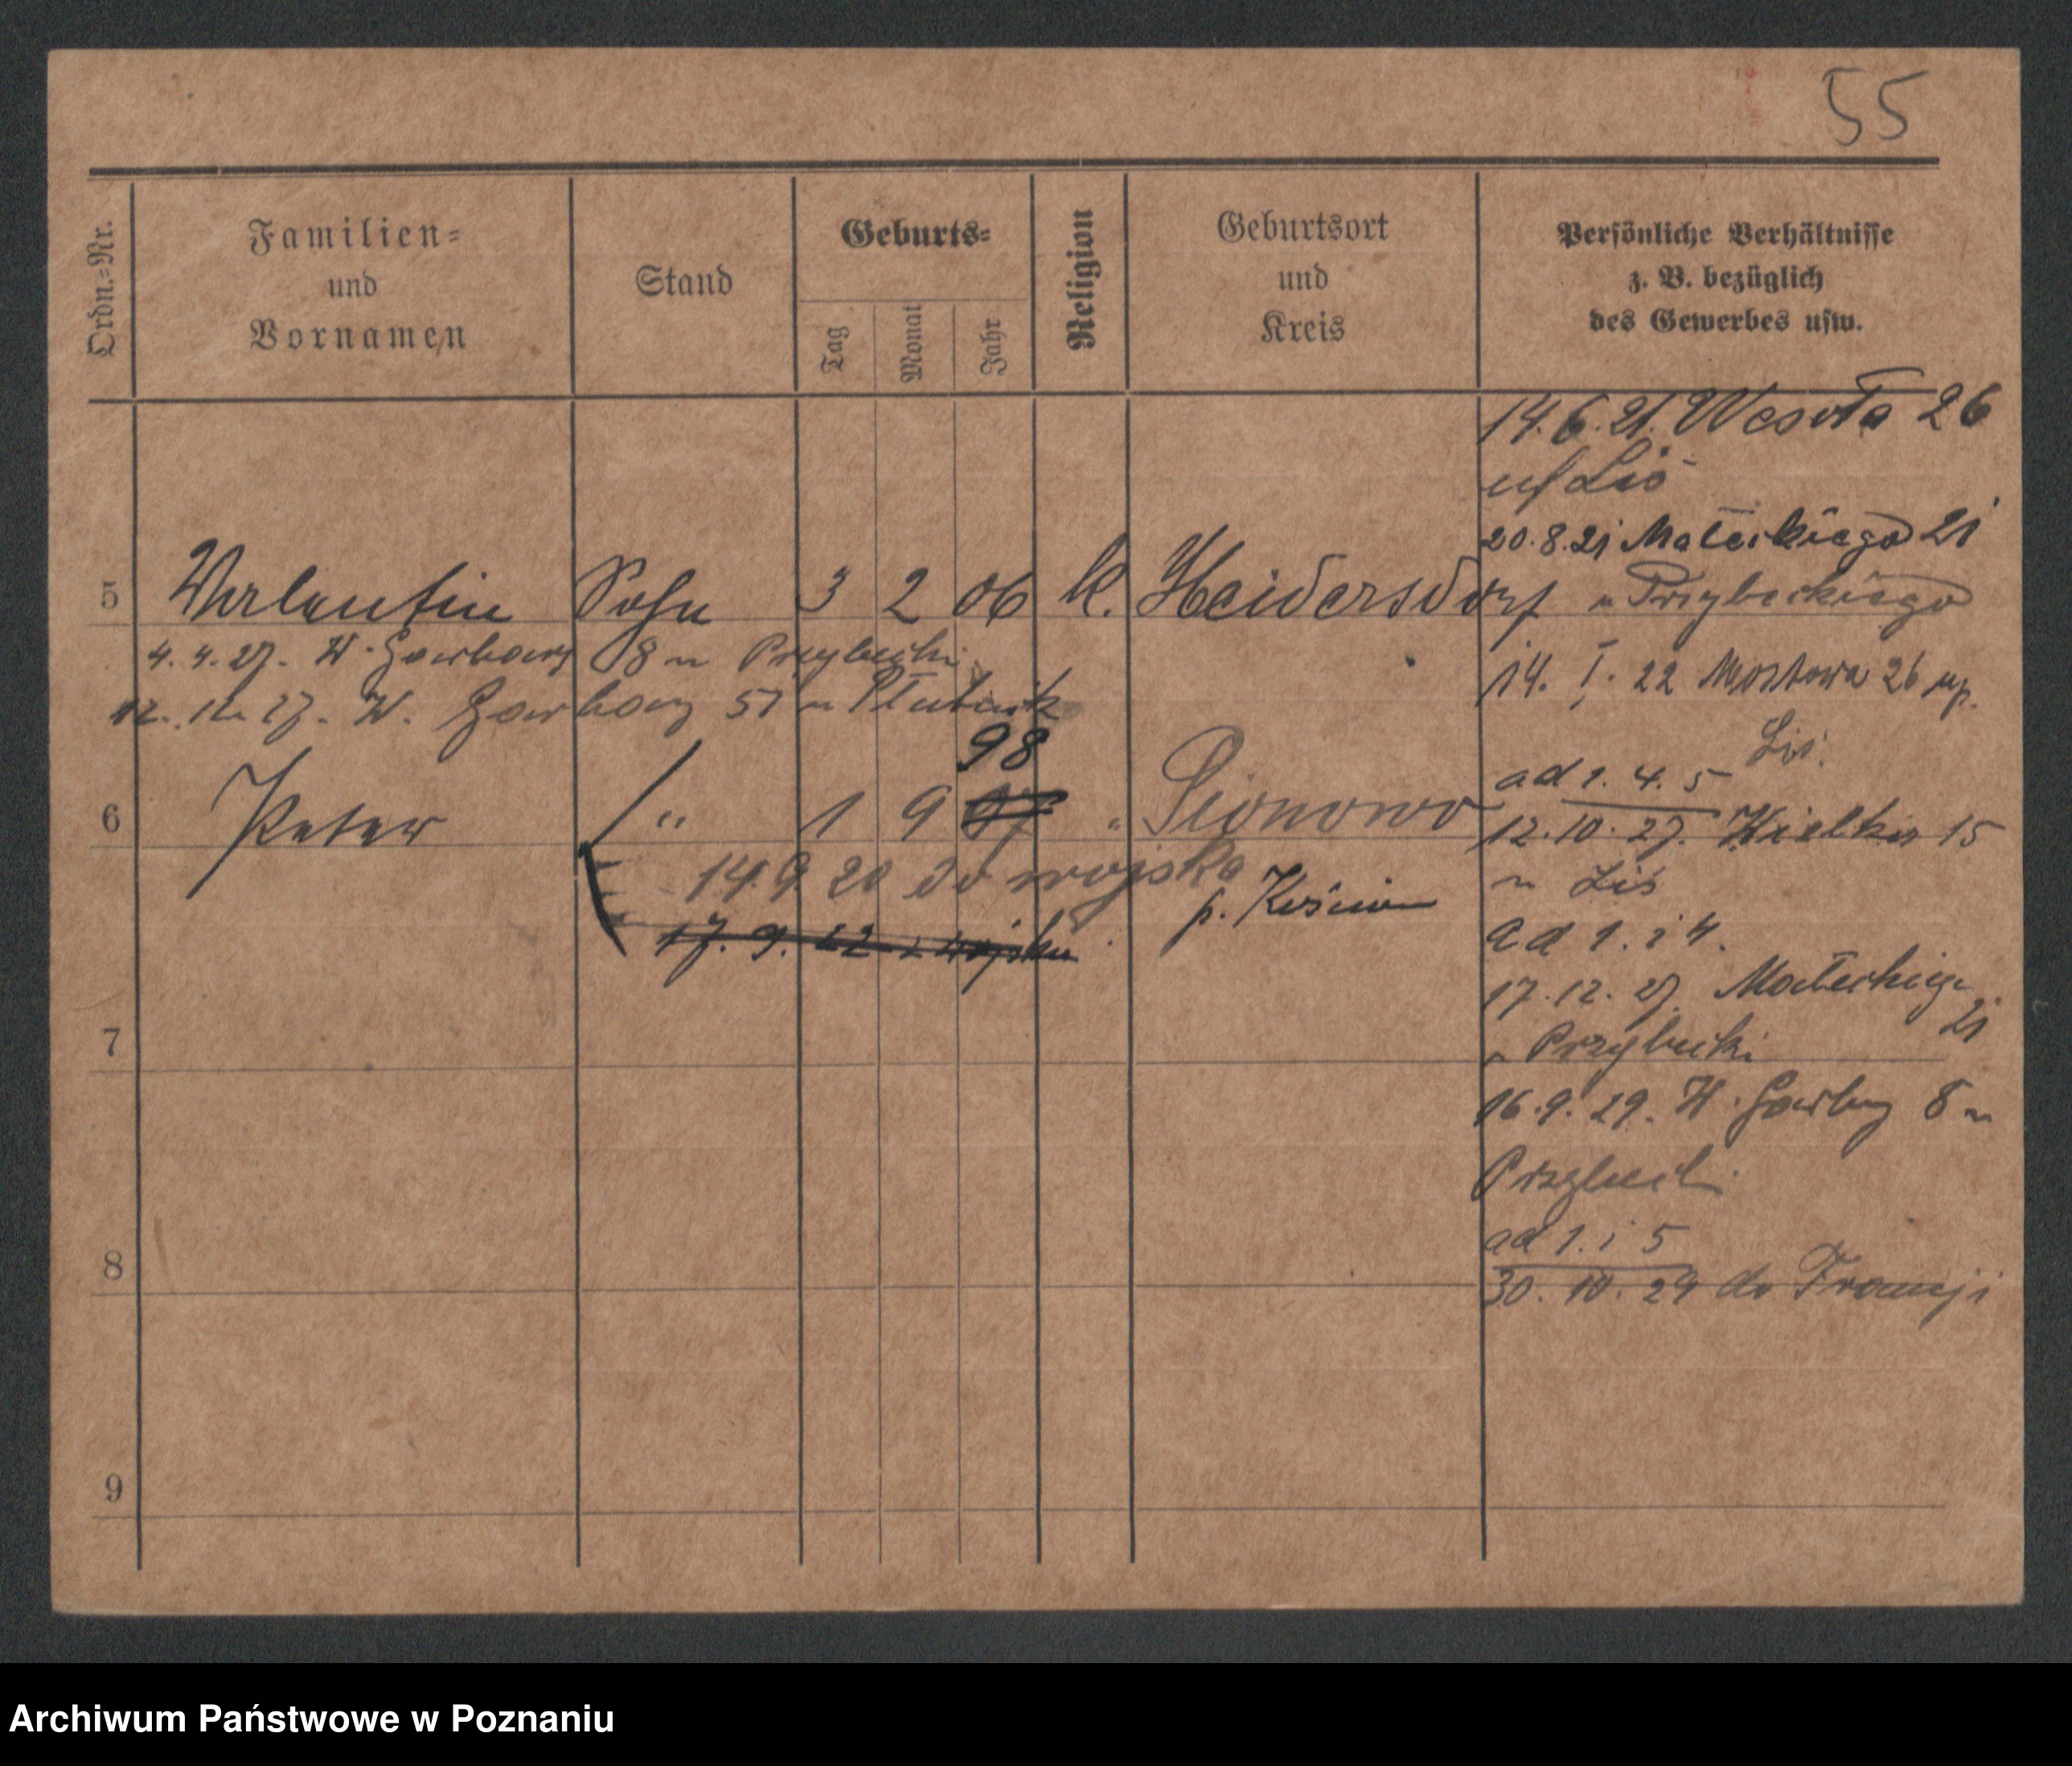 55
Ordn.=Nr.
Familien=
und
Vornamen
Stand
Geburts=
Tag
Monat
Jahr
Religion
Geburtsort
und
Kreis
Persönliche Verhältnisse
z. B. bezüglich
des Gewerbes usw.
14.6.21. Wesoła 26
Lis
20.8.21 Małeckiego 21
5 Valentin Sohn 3 2 06 k. Heidersdorf
u Przybeckiego
4. 4. 27. W. Garbary 8 u Przybecki
14. I. 22 Mostowa 26
12. 27. W. Garbary 51 u
Lis.
98
ad 1. 4. 5
6 Peter " 1 9 07 "
12.10.27. 15
14.9 20 do wojska
u Lis
p. Kościan
17. 9. 22 z wojska
ad 1. i 4.
17.12.27. Małeckieg
21
7
u Przybecki
16.9.29. W. Garbary 8 u
Przybecki
ad 1. i 5
8
30. 10. 29 do Francji
9
Archiwum Państwowe w Poznaniu